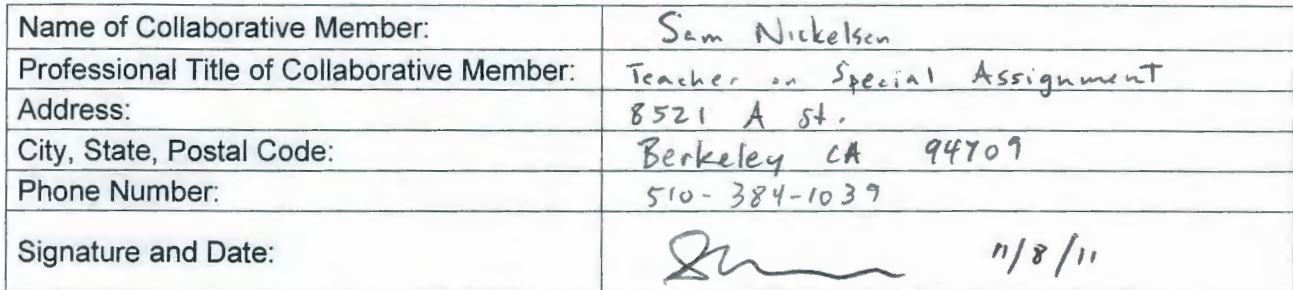 Name of Collaborative Member: Sam Nickelsen
Professional Title of Collaborative Member: Teacher on Special Assignment
Address: 8521 A St.
City, State, Postal Code: Berkeley CA 94709
Phone Number: 510-384-1039
Signature and Date: 11/8/11